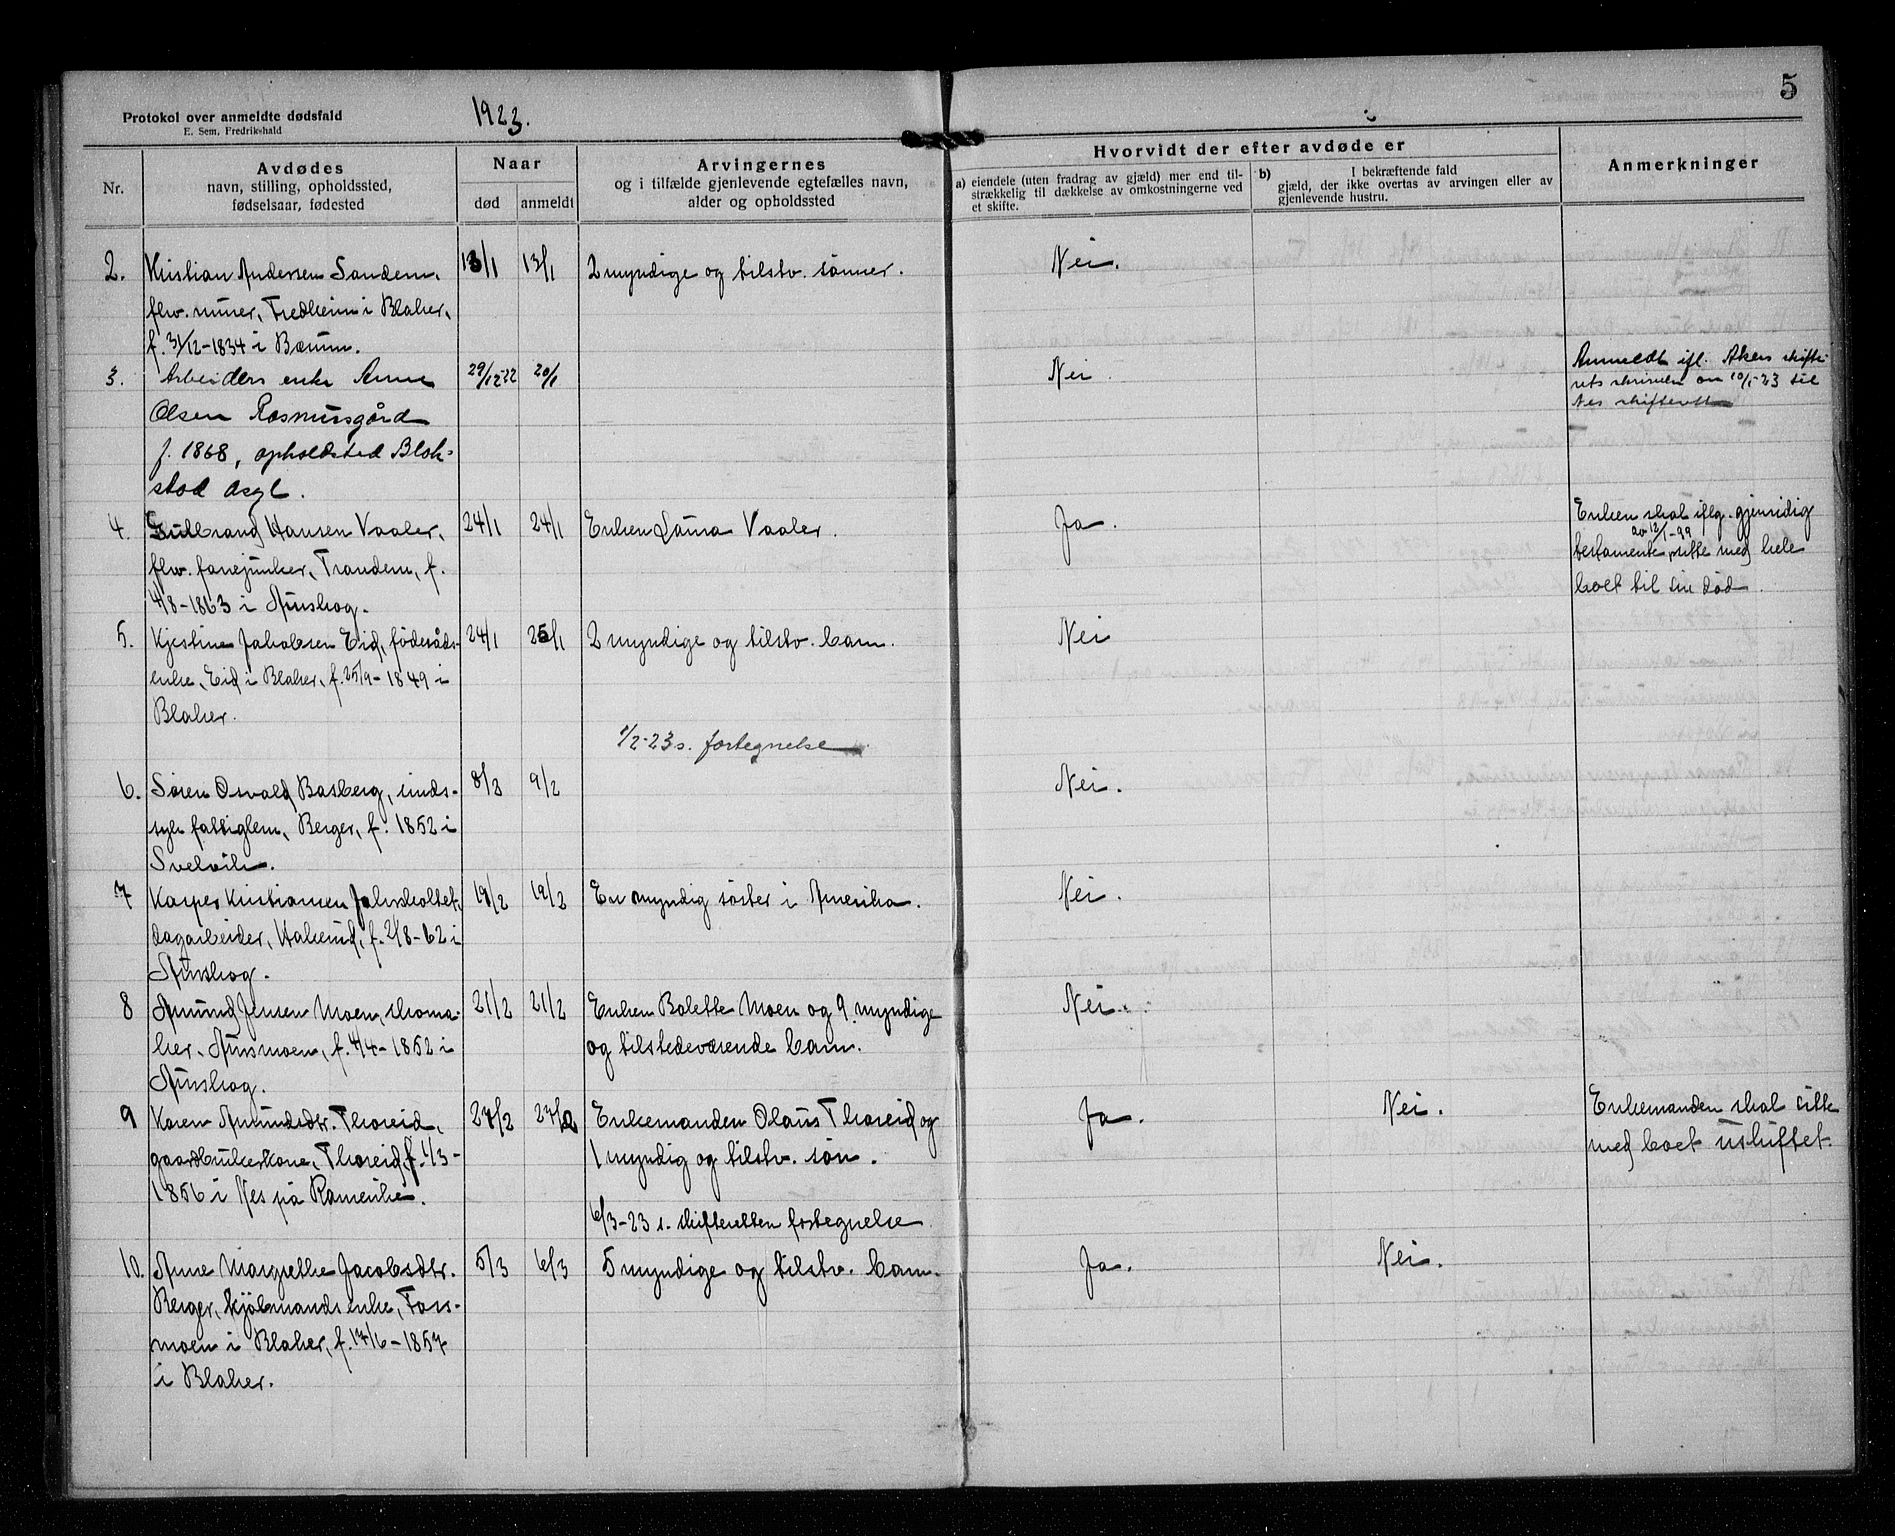 Protokol over anmeldte dødsfald
E. Sem, Fredrikshald
1923.
5
Nr.
Avdødes
navn, stilling, opholdssted,
fødselsaar, fødested
Naar
død
anmeldt
Arvingernes
og i tilfælde gjenlevende egtefælles navn,
alder og opholdssted
Hvorvidt der efter avdøde er
a) eiendele (uten fradrag av gjæld) mer end til-
strækkelig til dækkelse av omkostningerne ved
et skifte.
b) I bekræftende fald
gjæld, der ikke overtas av arvingen eller av
gjenlevende hustru.
Anmerkninger
2. Kristian Andersen Sandem, 13/1 13/1 2 myndige og tilstv. sønner. Nei.
flv. murer, Fredheim i Blaker,
f. 31/12-1834 i Bærum.
3. Arbeiders enke Anne 29/12-22 20/1 Nei. Anmeldt ifl. Akers skifte-
Olsen Rasmusgård rets skrivelse av 10/1-23 til
f. 1868, opholdsted Blak- Nes skifterett
stad asyl.
4. Gulbrand Hansen Vaaler, 24/1 24/1 Enken Laura Vaaler. Ja. Enken skal iflg. gjensidig
flv. fanejunker, Trandem, f. testamente av 12/1-99 sitte med hele
4/8-1863 i Aurskog. boet til sin død.
5. Kjestine Jakobsen Eid, føderåds- 24/1 25/1 2 myndige og tilstv. barn. Nei
enke, Eid i Blaker, f. 25/9-1849 i
Blaker.
1/2-23 s. fortegnelse
6. Søren Osvald Basberg, sinds- 8/2 9/2 Nei.
syk fattiglem, Berger, f. 1852 i
Svelvik.
7 Kasper Kristiansen Jahrholtet, 19/2 19/2 En myndig søster i Amerika. Nei.
dagarbeider, f. 2/8-62 i
Aurskog.
8 Amund Jensen Moen, skoma- 21/2 21/2 Enken Bolette Moen og 9 myndige Nei.
ker, Aursmoen, f. 4/4-1852 i og tilstedeværende barn.
Aurskog.
9 Karen Amundsdtr. Thoreid, 27/2 27/2 Enkemanden Olaus Thoreid og Ja. Nei. Enkemanden skal sitte
gaardbrukerkone, Thoreid, f. 1/3- 1 myndig og tilstv. søn. med boet uskiftet.
1856 i Nes på Romerike.
6/3-23 s. skifteretten fortegnelse
10. Anne Margrethe Jacobsdtr. 5/3 6/3 5 myndige og tilstv. barn. Ja. Nei.
Berger, kjøbmands enke, Foss-
moen i Blaker, f. 17/6-1857
i Blaker.